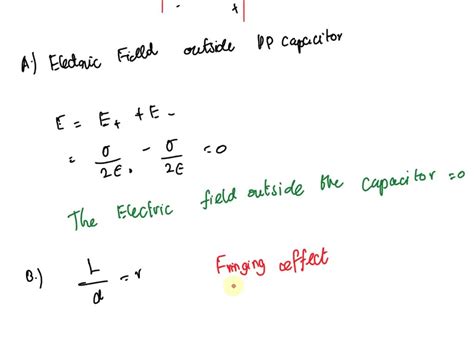 A.) Electric Field outside PP capacitor
E = E₊ + E₋
= σ/2ε₀ - σ/2ε = 0
The Electric field outside the capacitor = 0
B.) L/d = r
Fringing oeffect